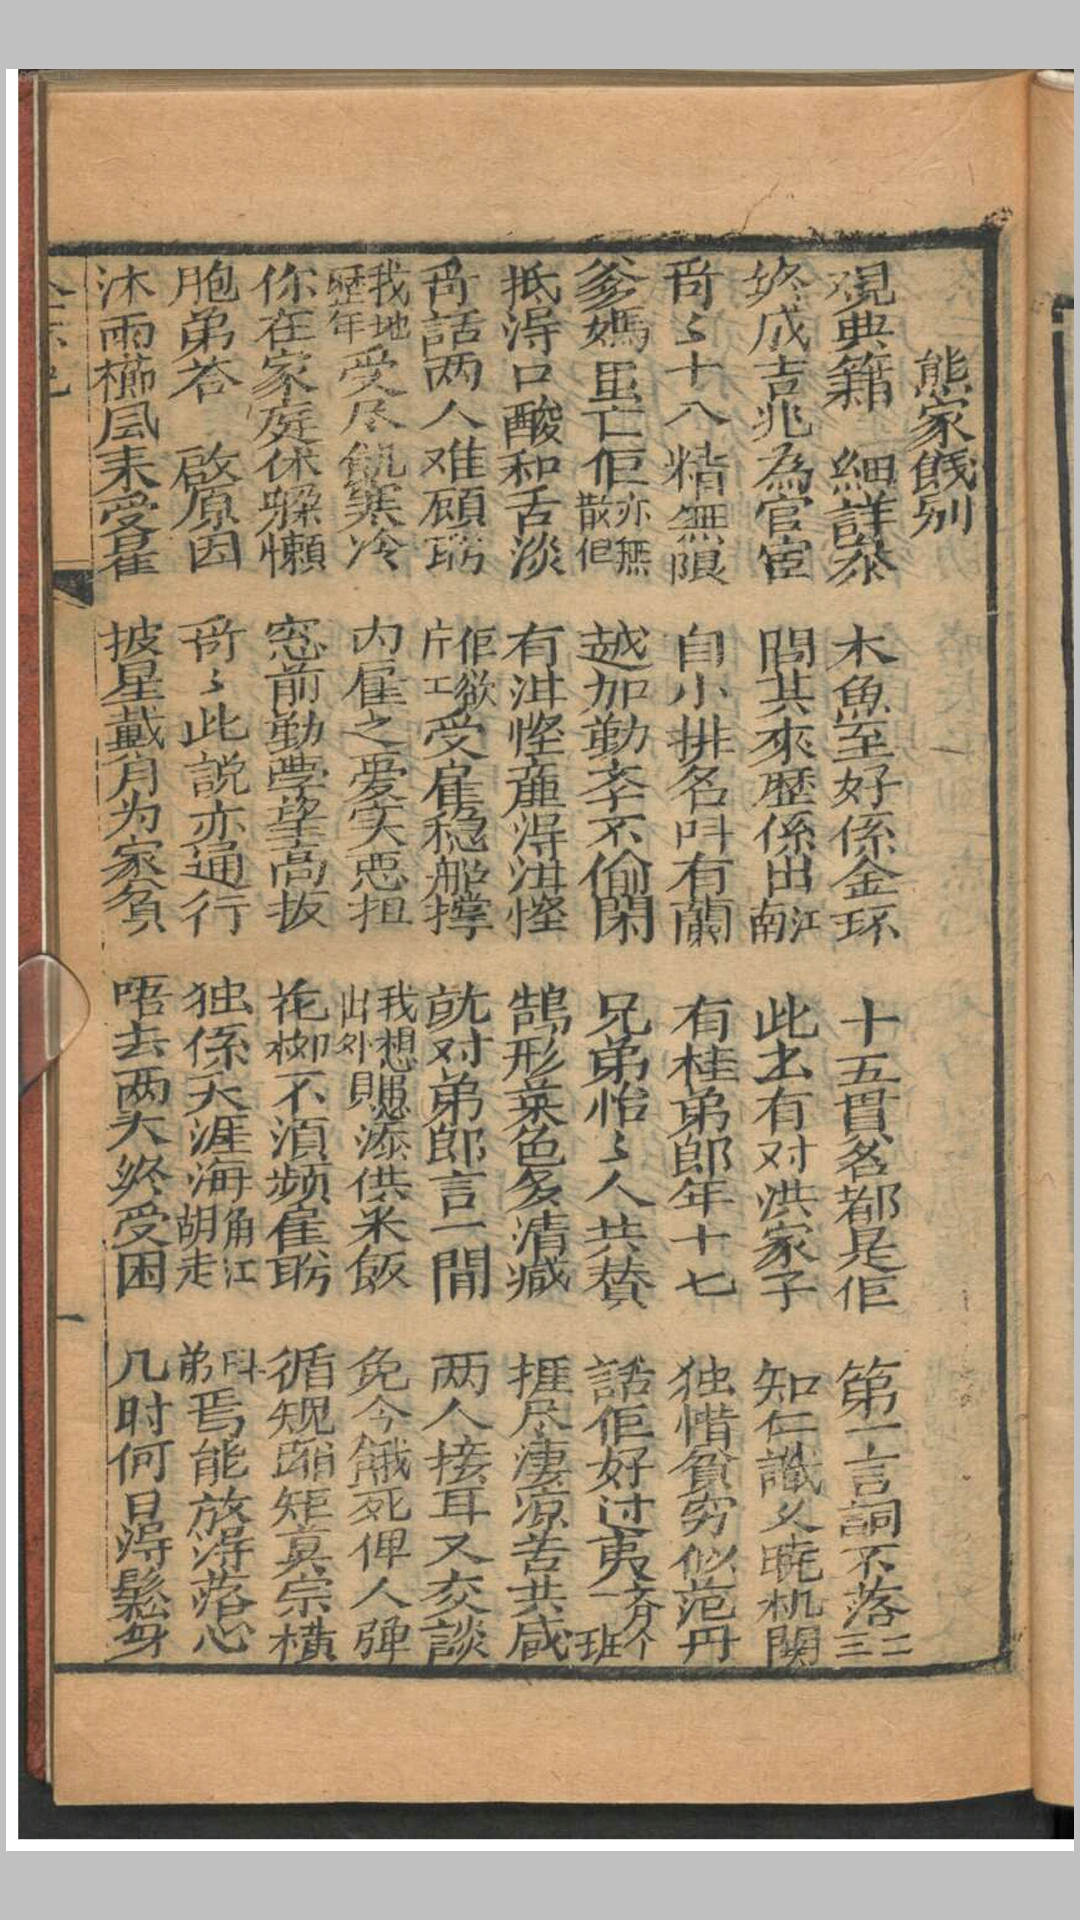 熊家餞別
觀典籍 細詳叅 木魚至好係金环 十五貫名都是佢 第一言詞不落二三
終成吉兆為官宦 問其來歷係出江南 此土有对洪家子 知仁識义暁机関
哥〻十八精無限 自小排名叫有蘭 有桂弟郎年十七 独惜貧穷似范丹
爹媽虽亡佢亦無散但 越加勤孝不偷閑 兄弟怡〻人共賛 話佢好过夷齐一个班
抵淂口酸和舌淡 有泔慳齑淂泔慳 鵠形菜色多清减 捱尽凄凉苦共咸
哥話两人难顾聁 佢欲片工受雇稳船撑 就对弟郎言一間 两人接耳又交談
我地歷年受尽飢寒冷 内雇之憂实恶担 我想出外賜添供米飯 免今餓死俾人弹
你在家庭休躱懒 窓前勤學望高扳 花柳不湏頻雇聁 循规蹈矩真宗横
胞弟荅 啟原因 哥〻此説亦通行 独係天涯海角江胡走 叫弟焉能放淂落心
沐雨櫛風来受雇 披星戴月为家貧 唔去两大终受困 几时何日淂鬆身
一